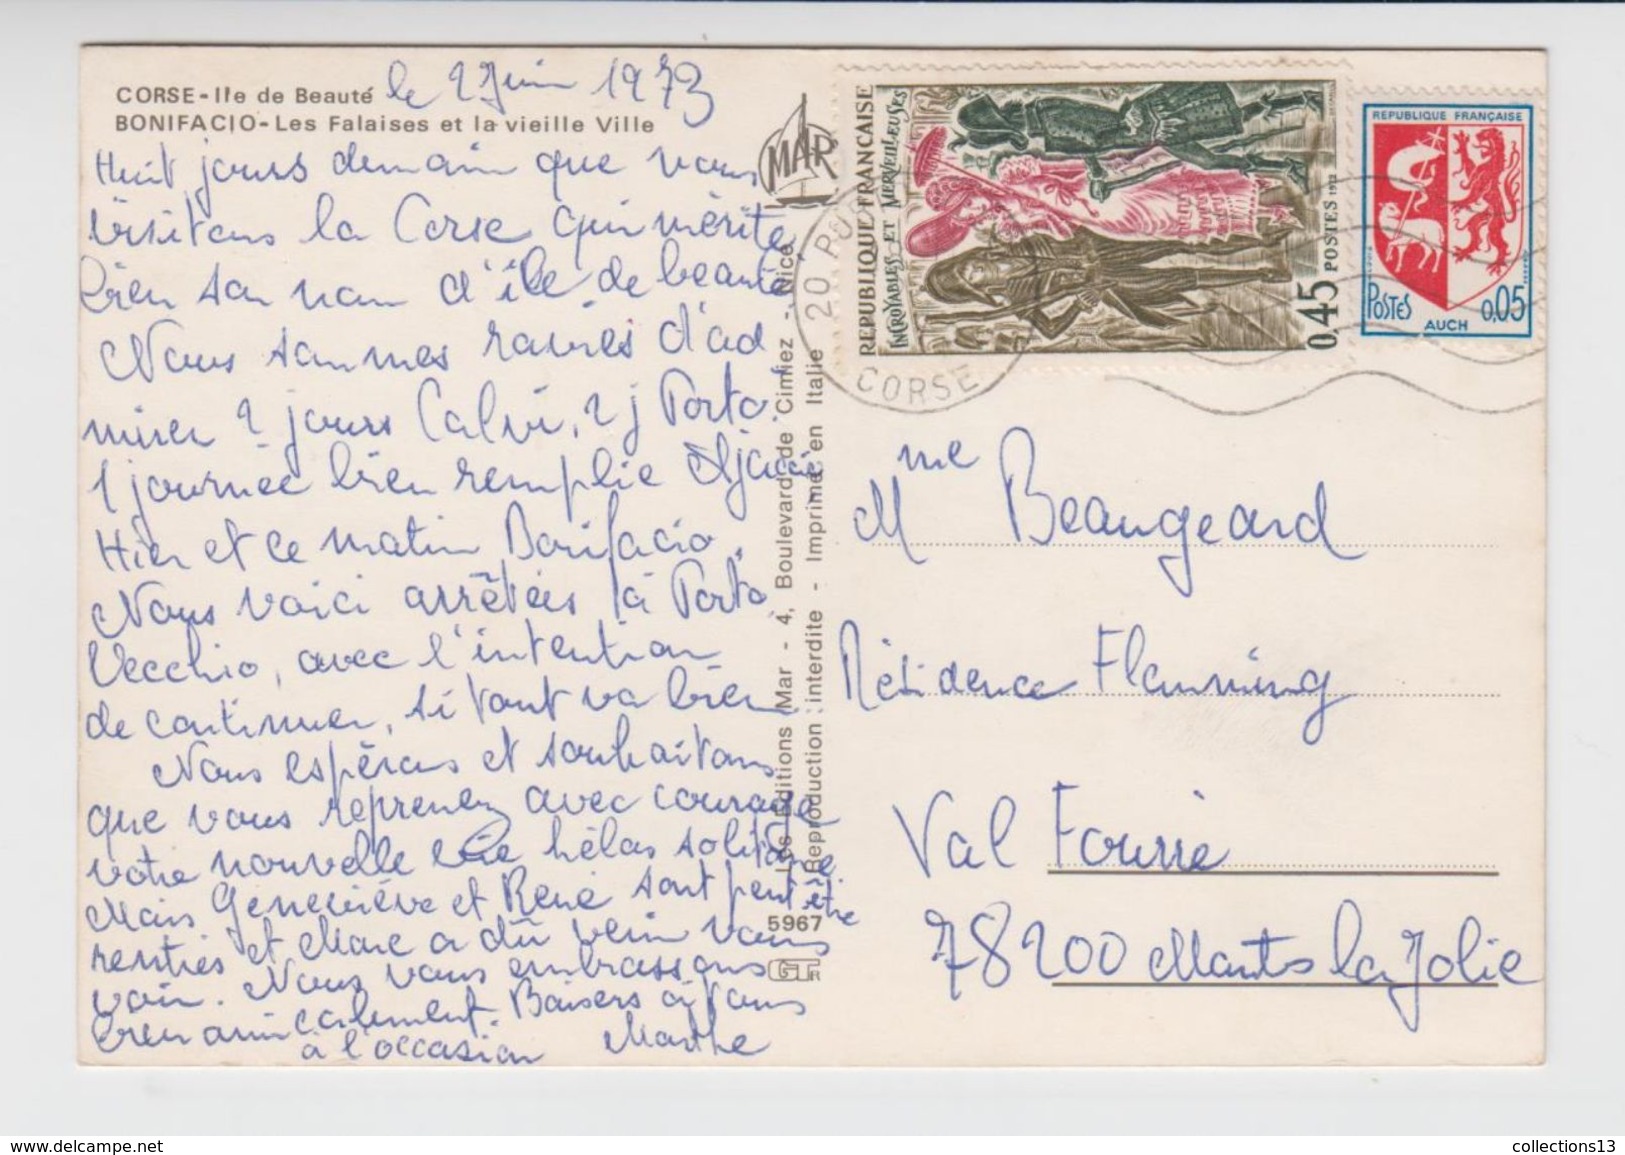 CORSE - Ile de Beauté
BONIFACIO - Les Falaises et la vieille Ville
le 2 Juin 1973
Huit jours demain que nous
visitons la Corse qui mérite
bien son nom d'île de beauté
Nous sommes ravies d'ad
mirer 2 jours Calvi, 2 j Porto.
1 journée bien remplie Ajaccio
Hier et ce matin Bonifacio.
Nous voici arrêtées à Porto
Vecchio, avec l'intention
de continuer, si tout va bien
Nous espérons et souhaitons
que vous reprenez avec courage
votre nouvelle vie hélas solitaire
Mais Geneviève et René sont peut être
rentrés et Marc a dû venir vous
voir. Nous vous embrassons
bien amicalement. Baisers à tous
à l'occasion Marthe
MAR
Les Editions Mar - 4, Boulevard de Cimiez - Nice
Reproduction interdite - Imprimé en Italie
5967
GTR
20
CORSE
REPUBLIQUE FRANÇAISE
INCROYABLES ET MERVEILLEUSES
0,45 POSTES 1972
REPUBLIQUE FRANÇAISE
POSTES 0,05
AUCH
Mme Beaugeard
Résidence Flemming
Val Fourré
78200 Mantes la Jolie
www.delcampe.net
collections13